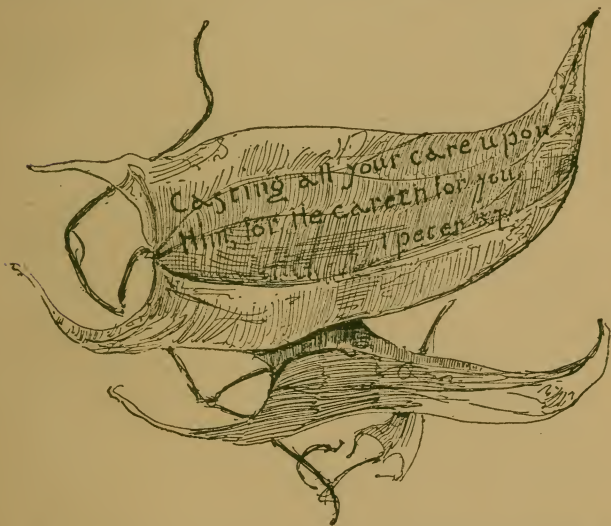 Casting all your care upon
Him, for He careth for you.
1 peter 5.7.